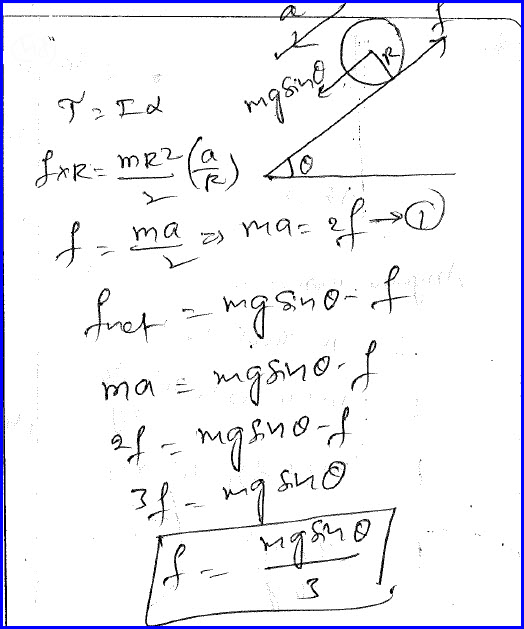 a
f
R
mg sinθ
θ
τ = Iα
f×R = mR²/2 (a/R)
f = ma/2 ⇒ ma = 2f → ①
fnet = mg sinθ - f
ma = mg sinθ - f
2f = mg sinθ - f
3f = mg sinθ
f = mg sinθ/3